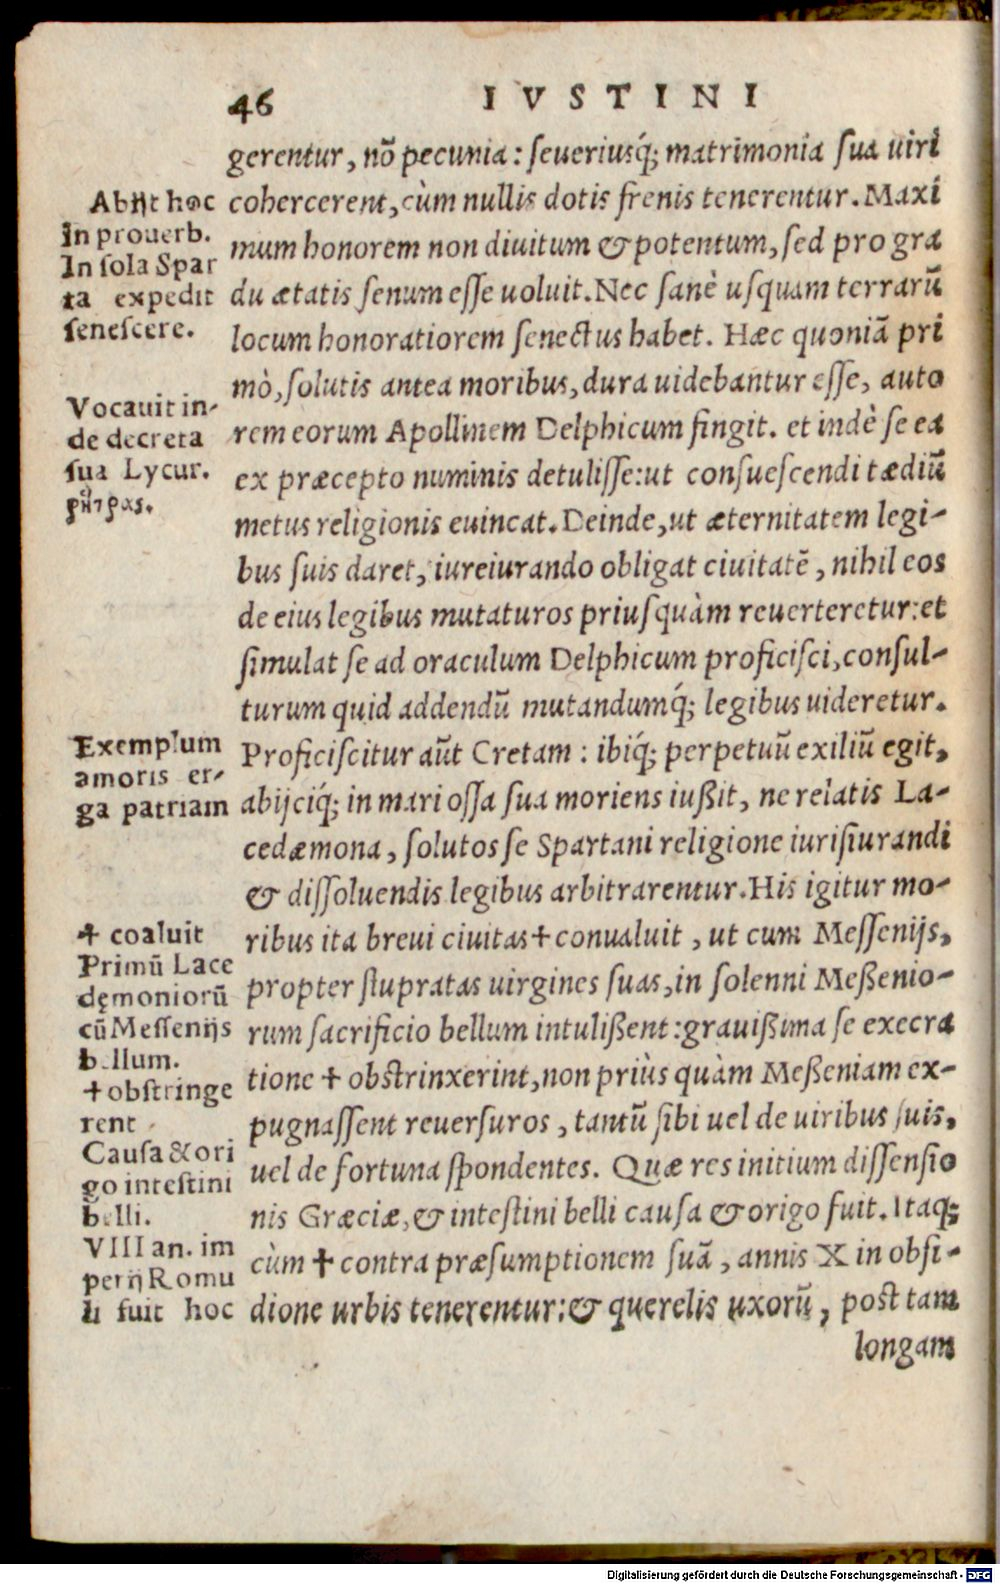 46 IVSTINI
gerentur, nõ pecunia: ſeueriusq́; matrimonia ſua uiri
cohercerent, cùm nullis dotis frenis tenerentur. Maxi
mum honorem non diuitum & potentum, ſed pro gra
du ætatis ſenum eſſe uoluit. Nec ſanè uſquam terrarũ
locum honoratiorem ſenectus habet. Hæc quoniã pri
mò, ſolutis antea moribus, dura uidebantur eſſe, auto
rem eorum Apollinem Delphicum fingit. et indè ſe ea
ex præcepto numinis detuliſſe: ut conſueſcendi tædiũ
metus religionis euincat. Deinde, ut æternitatem legi-
bus ſuis daret, iureiurando obligat ciuitatẽ, nihil eos
de eius legibus mutaturos priuſquàm reuerteretur: et
ſimulat ſe ad oraculum Delphicum proficiſci, conſul-
turum quid addendũ mutandumq́; legibus uideretur.
Proficiſcitur aũt Cretam: ibiq́; perpetuũ exiliũ egit,
abijciq́; in mari oſſa ſua moriens iußit, ne relatis La-
cedæmona, ſolutos ſe Spartani religione iurisiurandi
& diſſoluendis legibus arbitrarentur. His igitur mo-
ribus ita breui ciuitas † conualuit, ut cum Meſſenijs,
propter ſtupratas uirgines ſuas, in ſolenni Meßenio-
rum ſacrificio bellum intulißent: grauißima ſe execra
tione † obſtrinxerint, non priùs quàm Meßeniam ex-
pugnaſſent reuerſuros, tantũ ſibi uel de uiribus ſuis,
uel de fortuna ſpondentes. Quæ res initium diſſenſio
nis Græciæ, & inteſtini belli cauſa & origo fuit. Itaq;
cùm † contra præſumptionem ſuã, annis X in obſi-
dione urbis tenerentur: & querelis uxorũ, poſt tam
longam
Abijt hoc
In prouerb.
In ſola Spar
ta expedit
ſeneſcere.
Vocauit in-
de decreta
ſua Lycur.
ῥήτρας.
Exemplum
amoris er-
ga patriam
† coaluit
Primũ Lace
dęmoniorũ
cũ Meſſenijs
bellum.
† obſtringe
rent
Cauſa & ori
go inteſtini
belli.
VIII an. im
perij Romu
li fuit hoc
Digitalisierung gefördert durch die Deutsche Forschungsgemeinschaft - DFG